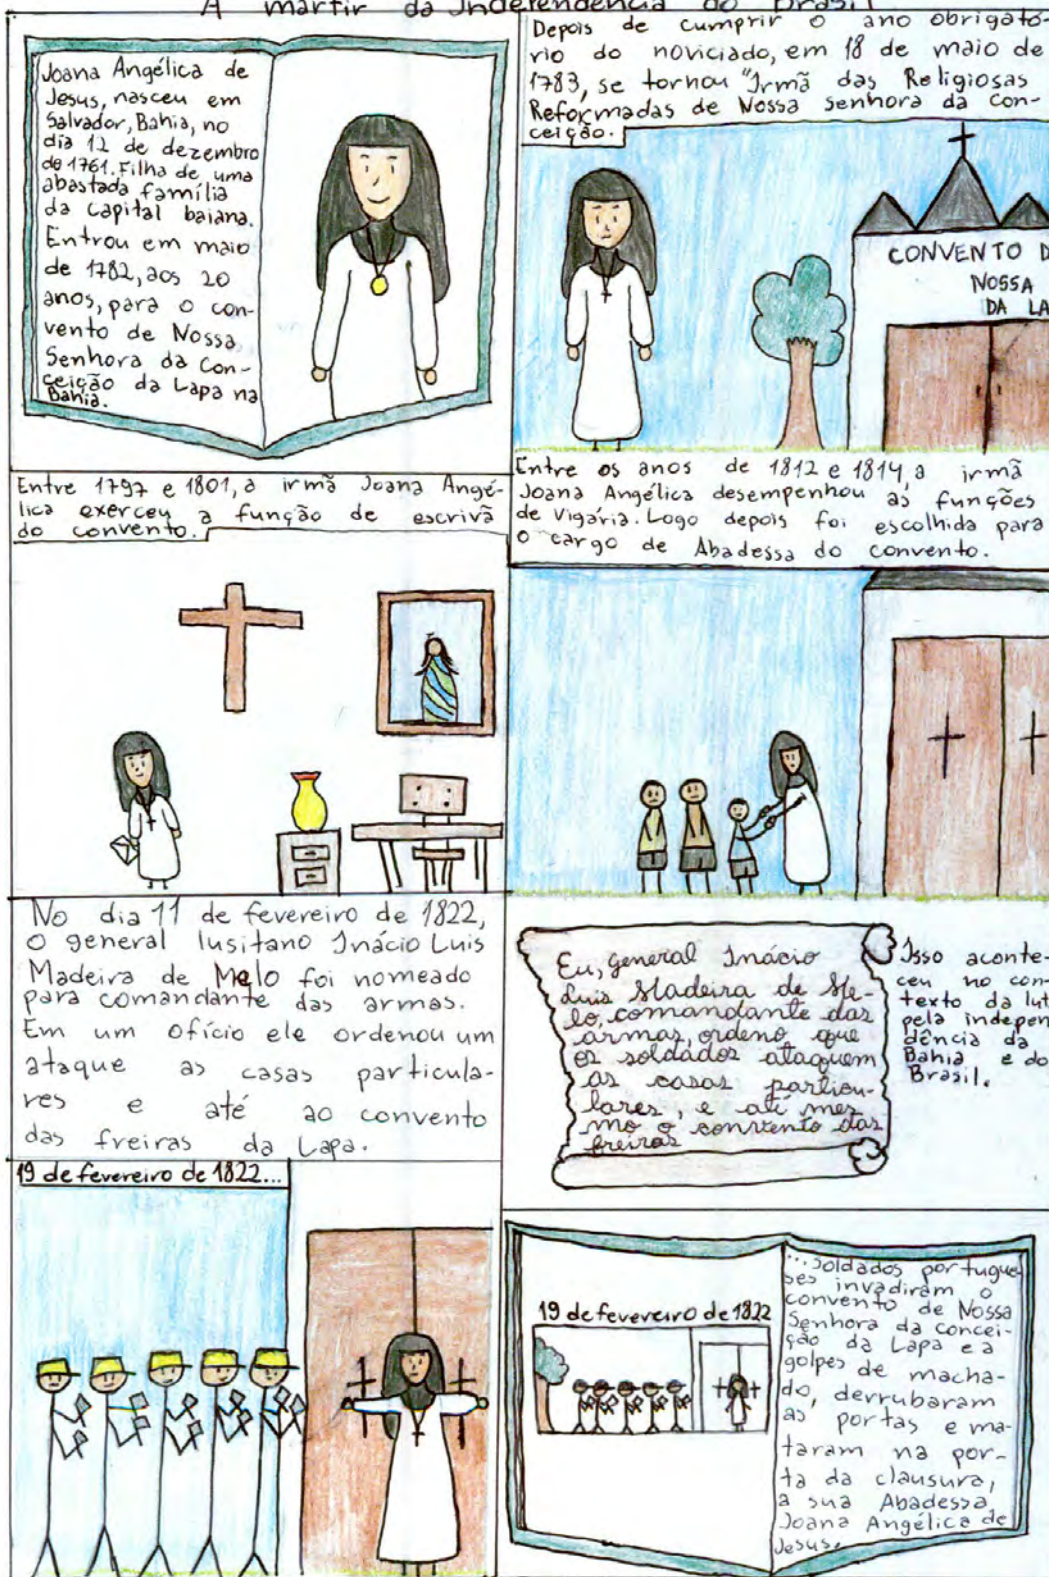 A mártir da Independência do Brasil
Joana Angélica de
Jesus, nasceu em
Salvador, Bahia, no
dia 12 de dezembro
de 1761. Filha de uma
abastada família
da capital baiana.
Entrou em maio
de 1782, aos 20
anos, para o con-
vento de Nossa
Senhora da Con-
ceição da Lapa na
Bahia.
Depois de cumprir o ano obrigató-
rio do noviciado, em 18 de maio de
1783, se tornou "Irmã das Religiosas
Reformadas de Nossa Senhora da Con-
ceição.
CONVENTO D
NOSSA
DA LA
Entre 1797 e 1801, a irmã Joana Angé-
lica exerceu a função de escrivã
do convento.
Entre os anos de 1812 e 1814, a irmã
Joana Angélica desempenhou as funções
de Vigária. Logo depois foi escolhida para
o cargo de Abadessa do convento.
No dia 11 de fevereiro de 1822,
o general lusitano Inácio Luis
Madeira de Melo foi nomeado
para comandante das armas.
Em um ofício ele ordenou um
ataque as casas particula-
res e até ao convento
das freiras da Lapa.
Eu, general Inácio
Luis Madeira de Me-
lo, comandante das
armas, ordeno que
os soldados ataquem
as casas particu-
lares, e até mes
mo o convento das
freiras
Isso aconte-
ceu no con-
texto da lut
pela indepen
dência da
Bahia e do
Brasil.
19 de fevereiro de 1822...
19 de fevereiro de 1822
...soldados portugue
ses invadiram o
convento de Nossa
Senhora da Concei-
ção da Lapa e a
golpes de macha-
do, derrubaram
as portas e ma-
taram na por-
ta da clausura,
a sua Abadessa
Joana Angélica de
Jesus.